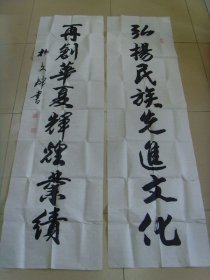 弘揚民族先進文化
再創華夏輝煌業績